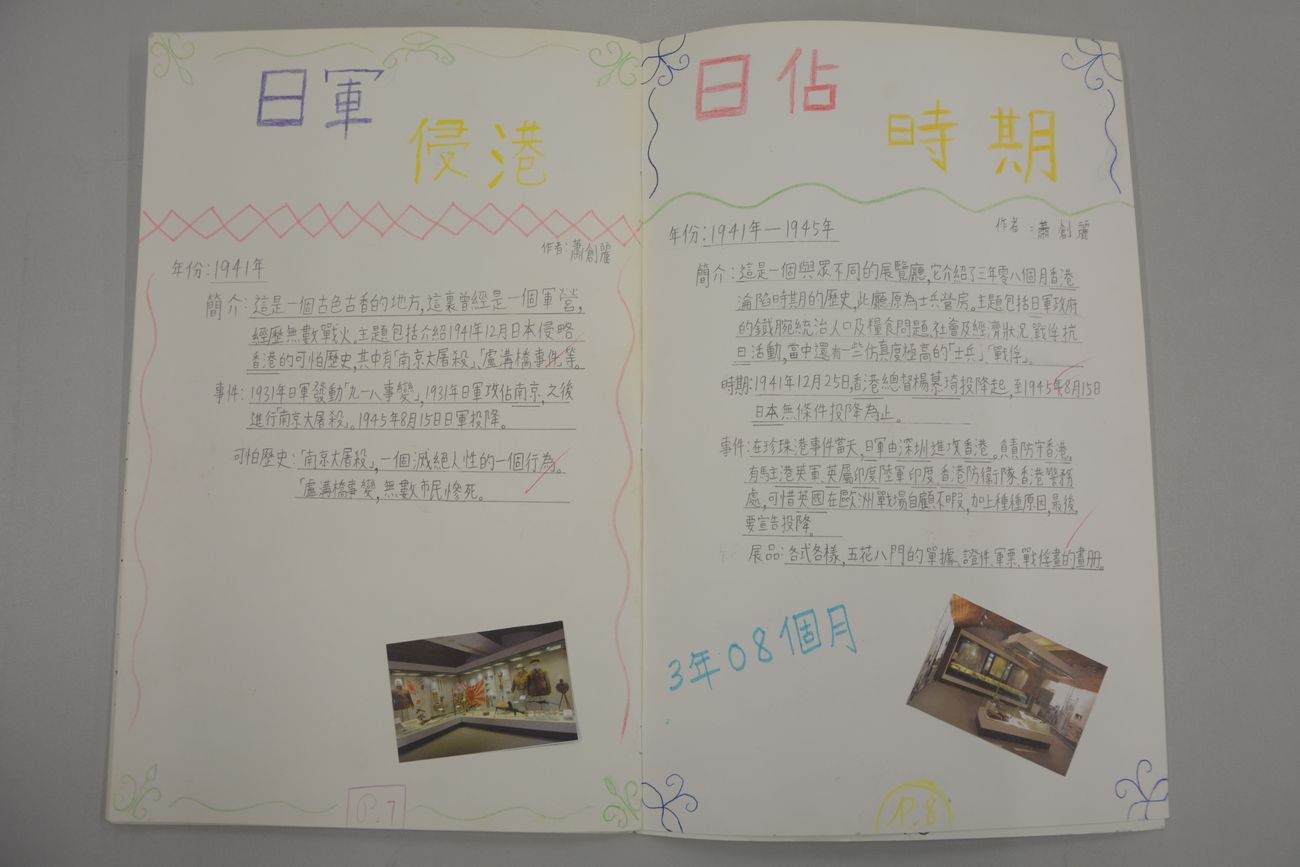 日軍
侵港
作者:蕭創麗
年份:1941年
簡介:這是一個古色古香的地方,這裏曾經是一個軍營,
經歷無數戰火,主題包括介紹1941年12月日本侵略
香港的可怕歷史,其中有「南京大屠殺」、「盧溝橋事件」等。
事件:1931年日軍發動「九一八事變」,1931年日軍攻佔南京,之後
進行「南京大屠殺」。1945年8月15日日軍投降。
可怕歷史:「南京大屠殺」,一個滅絕人性的一個行為。
「盧溝橋事變,無數市民慘死。
P.7
日佔
時期
年份:1941年—1945年
作者:蕭創麗
簡介:這是一個與眾不同的展覽廳,它介紹了三年零八個月香港
淪陷時期的歷史,此廳原為士兵營房。主題包括日軍政府
的鐵腕統治人口及糧食問題、社會及經濟狀況、戰俘、抗
日活動,當中還有一些仿真度極高的「士兵」、「戰俘」。
時期:1941年12月25日,香港總督楊慕琦投降起,至1945年8月15日
日本無條件投降為止。
事件:在珍珠港事件當天,日軍由深圳進攻香港。負責防守香港,
有駐港英軍、英屬印度陸軍印度、香港防衛隊、香港警務
處,可惜英國在歐洲戰場自顧不暇,加上種種原因,最後
要宣告投降。
展品:各式各樣,五花八門的單據、證件、軍票、戰俘畫的畫册。
3年08個月
P.8